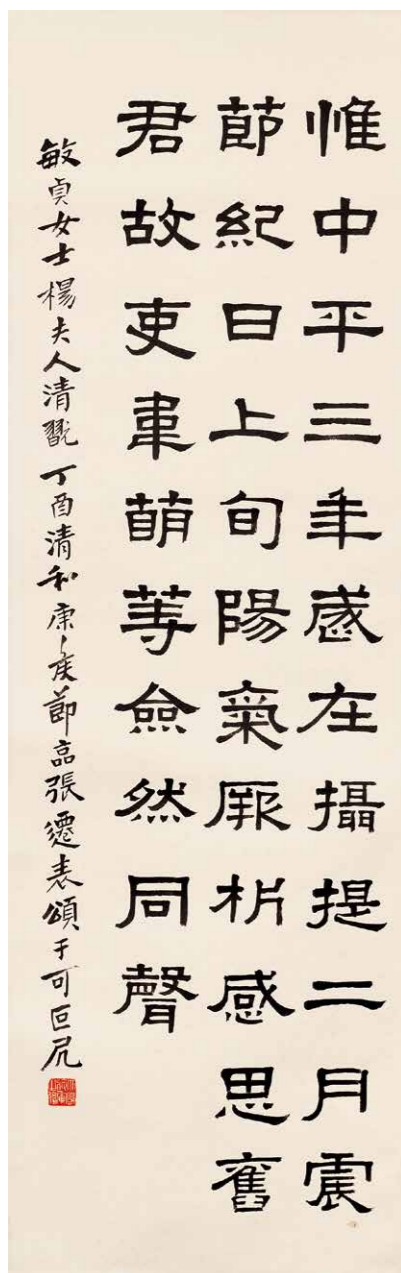 惟中平三年歲在攝提二月震
節紀日上旬陽氣厥析感思舊
君故吏韋萌等僉然同聲
敏貞女士楊夫人清翫丁酉清和康侯節臨張遷表頌于可叵凥